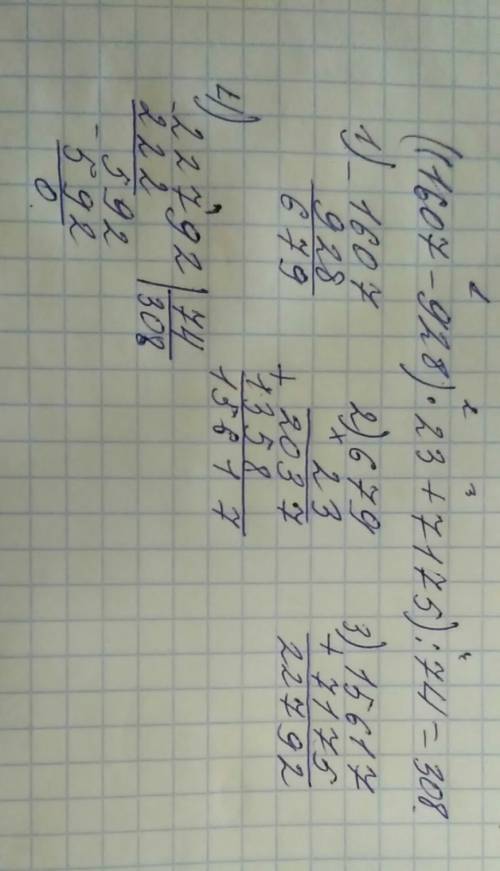 ((1607 - 928) · 23 + 7175) : 74 = 308.
1 2 3 4
1) - 1607
928
679
2) 679
× 23
2037
+ 1358
15617
3) 15617
+ 7175
22792
4) - 22792 | 74
222 308
- 592
592
0